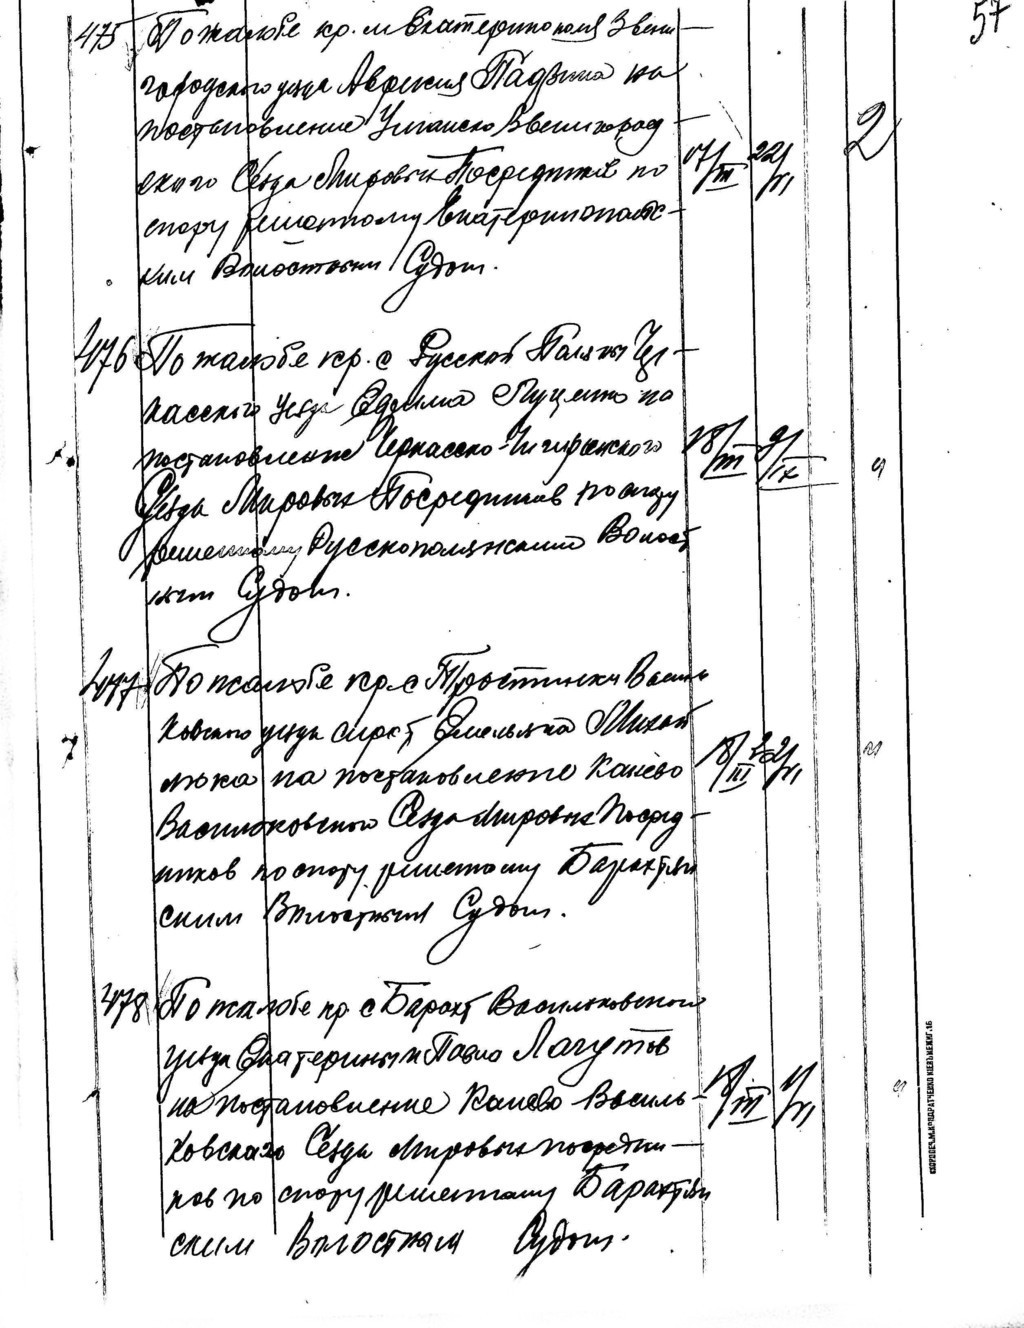 57
475 По жалобе кр. м Екатеринополя Звени-
городского уезда Аврксия Падзина на
постановление Уманско Звенигород-
ского Съезда Мировых Посредников по
спору решенному Екатеринопольс-
ким Волостным Судом.
17/III 22/VI
2
476 По жалобе кр. с Русской Поляны Чер-
касского уезда Луценко на
постановление Черкасско-Чигиринского
Съезда Мировых Посредников по спору
решенному Русскополянским Волост
ным Судом.
18/III 9/IX
477 По жалобе кр. с Тростинки Василь
ковского уезда сирот Емельяна Михай
люка на постановление Канево
Васильковского Съезда Мировых Посред-
ников по спору решенному Барахтян
ским Волостным Судом.
18/III 22/VI
478 По жалобе кр. с Барахт Васильковского
уезда Екатерины и Павла Лагутов
на постановление Канево Василь-
ковского Съезда Мировых посредни-
ков по спору решенному Барахтян
ским Волостным Судом.
18/III /VI